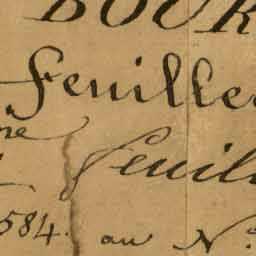 BOUR
Feuille
me Feuil
584. au N.